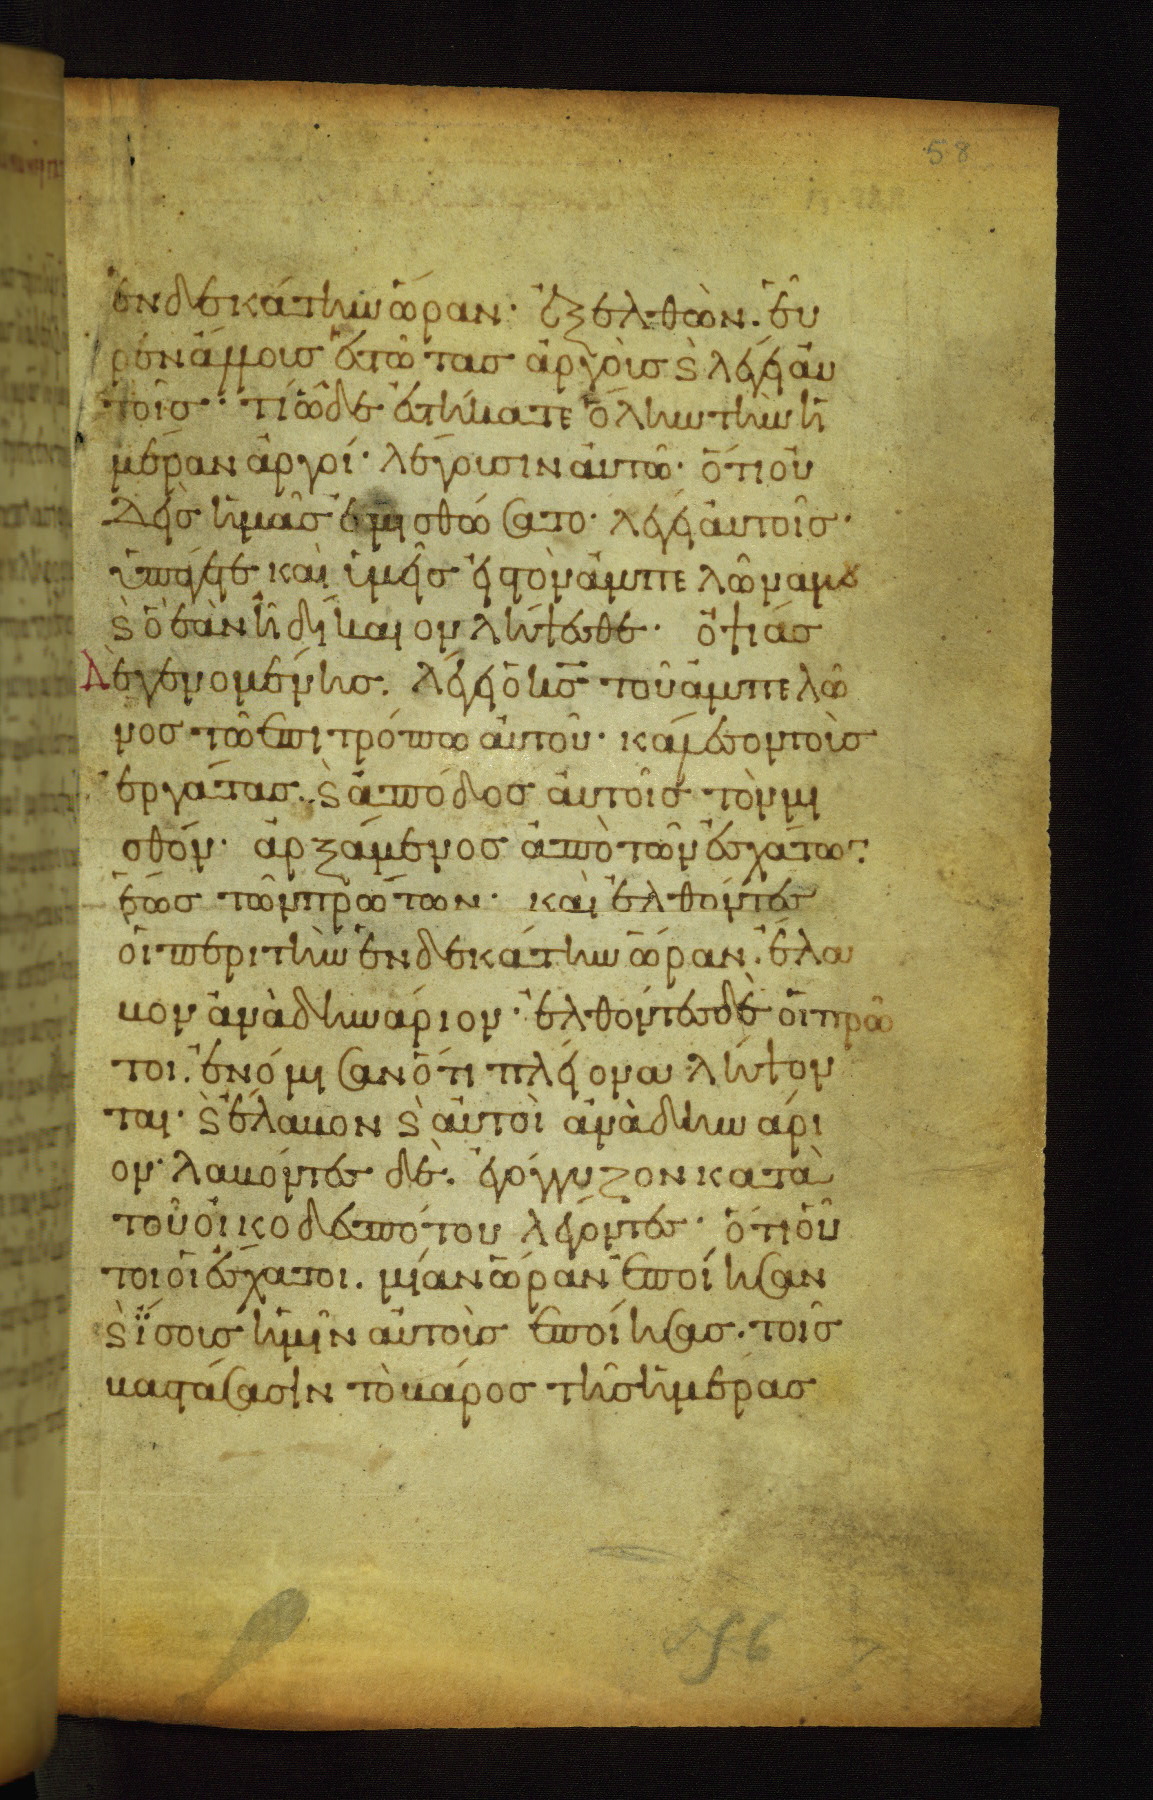 58
ἑνδεκάτην ὥραν· ἐξελθὼν· εὗ
ρεν ἄλλους ἑστῶτας ἀργοὺς ϗ λέγει αὐ
τοῖς· τί ὧδε ἑστήκατε ὅλην τὴν ἡ
μέραν ἀργοί· λέγουσιν αὐτῶ· ὅτι οὐ
δεὶς ἡμᾶς ἐμισθώσατο· λέγει αὐτοῖς·
ὑπάγετε καὶ ὑμεῖς εἰς τὸν ἀμπελῶνα μου
ϗ ὃ ἐὰν ἦ δίκαιον λήψεσθε· ὀψίας
δὲ γενομένης. λέγει ὁ κς τοῦ ἀμπελῶ
νος τῶ ἐπιτρόπω αὐτοῦ· κάλεσον τοὺς
ἐργάτας. ϗ ἀπόδος αὐτοῖς τὸν μι
σθόν· ἀρξάμενος ἀπὸ τῶν ἐσχάτων
ἕως τῶν πρώτων· καὶ ἐλθόντες
οἱ περι τὴν ἑνδεκάτην ὥραν. ἔλα
βον ἀνὰ δηνάριον· ἐλθοντες δὲ οἱ πρῶ
τοι. ἐνόμισαν ὅτι πλείονα λήψον
ται· ϗ ἔλαβον ϗ αὐτοὶ ἀνὰ δηνάρι
ον· λαβόντες δὲ. ἐγόγγυζον κατὰ
τοῦ οἰκοδεσπότου λέγοντες· ὅτι οὗ
τοι οἱ ἔσχατοι. μίαν ὥραν ἐποίησαν
ϗ ἴσους ἡμῖν αὐτοὺς ἐποίησας· τοῖς
βαστάσασιν τὸ βάρος τῆς ἡμέρας